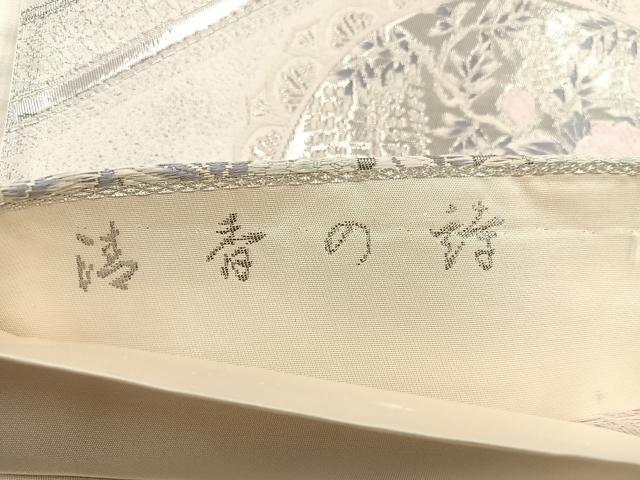 清香の詩